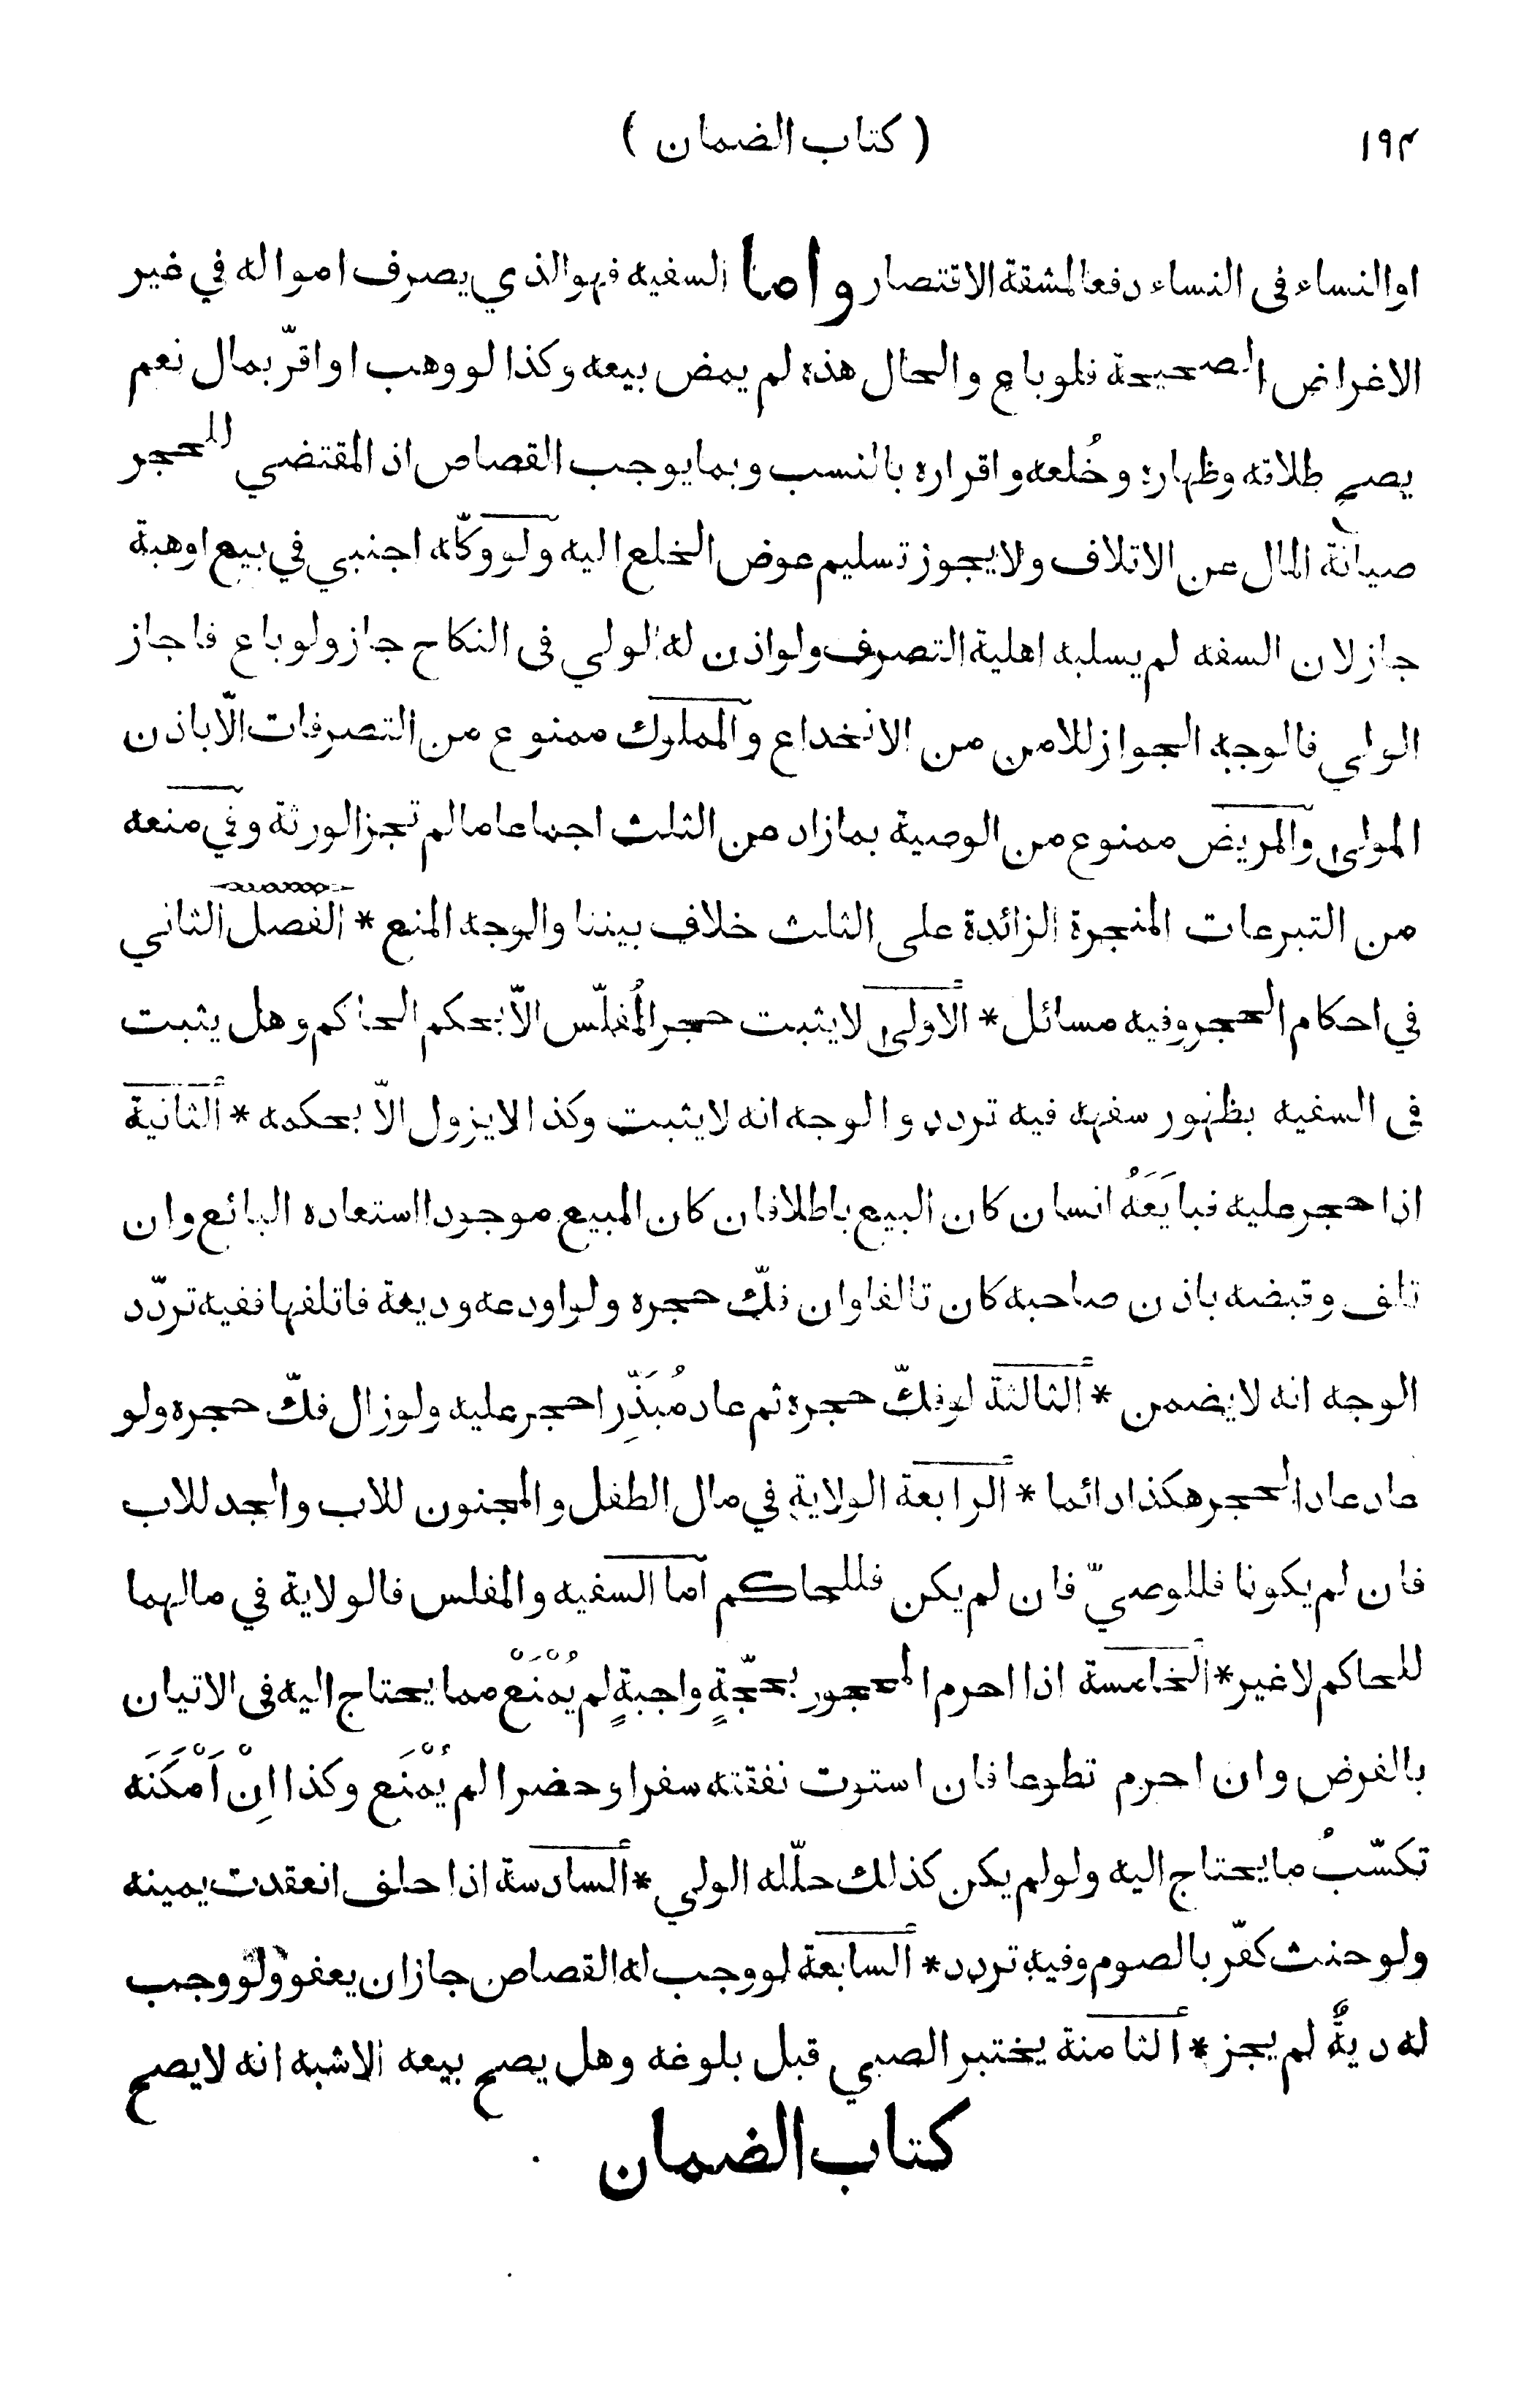 ١٩٤ ( كتاب الضمان )
او النساء في النساء دفعا لمشقة الاقتصار واما السفيه فهو الذي يصرف امواله في غير
الاغراض الصحيحة فلو باع والحال هذه لم يمض بيعه وكذا لو وهب او اقرّ بمال نعم
يصح طلاقه وظهاره وخُلعه واقراره بالنسب وبما يوجب القصاص اذ المقتضي للحجر
صيانة المال عن الاتلاف ولا يجوز تسليم عوض الخلع اليه ولو وكّله اجنبي في بيع او هبة
جاز لان السفه لم يسلبه اهلية التصرف ولو اذن له الولي في النكاح جاز ولو باع فاجاز
الولي فالوجه الجواز للامن من الانخداع والمملوك ممنوع من التصرفات الّا باذن
المولى والمريض ممنوع من الوصية بما زاد عن الثلث اجماعا ما لم تجز الورثة وفي منعه
من التبرعات المنجزة الزائدة على الثلث خلاف بيننا والوجه المنع * الفصل الثاني
في احكام الحجر وفيه مسائل * الاولى لا يثبت حجر المُفلّس الّا بحكم الحاكم وهل يثبت
في السفيه بظهور سفهه فيه تردد والوجه انه لا يثبت وكذا لا يزول الّا بحكمه * الثانية
اذا حجر عليه فبايَعَهُ انسان كان البيع باطلا فان كان المبيع موجودا استعاده البائع وان
تلف وقبضه باذن صاحبه كان تالفا وان فكّ حجره ولو اودعه وديعة فاتلفها ففيه تردّد
الوجه انه لا يضمن * الثالثة لو فكّ حجره ثم عاد مُبَذِّرا حجر عليه ولو زال فكّ حجره ولو
عاد عاد الحجر هكذا دائما * الرابعة الولاية في مال الطفل والمجنون للاب والجد للاب
فان لم يكونا فللوصيّ فان لم يكن فللحاكم اما السفيه والمفلس فالولاية في مالهما
للحاكم لا غير * الخامسة اذا احرم المحجور بحجّةٍ واجبةٍ لم يُمْنَعْ مما يحتاج اليه في الاتيان
بالفرض وان احرم تطوعا فان استوت نفقته سفرا وحضرا لم يُمْنَع وكذا اِنْ اَمْكَنَه
تكسّبُ ما يحتاج اليه ولو لم يكن كذلك حلّله الولي * السادسة اذا حلف انعقدت يمينه
ولو حنث كفّر بالصوم وفيه تردد * السابعة لو وجب له القصاص جاز ان يعفو ولو وجب
له ديةٌ لم يجز * الثامنة يختبر الصبي قبل بلوغه وهل يصح بيعه الاشبه انه لا يصح
كتاب الضمان